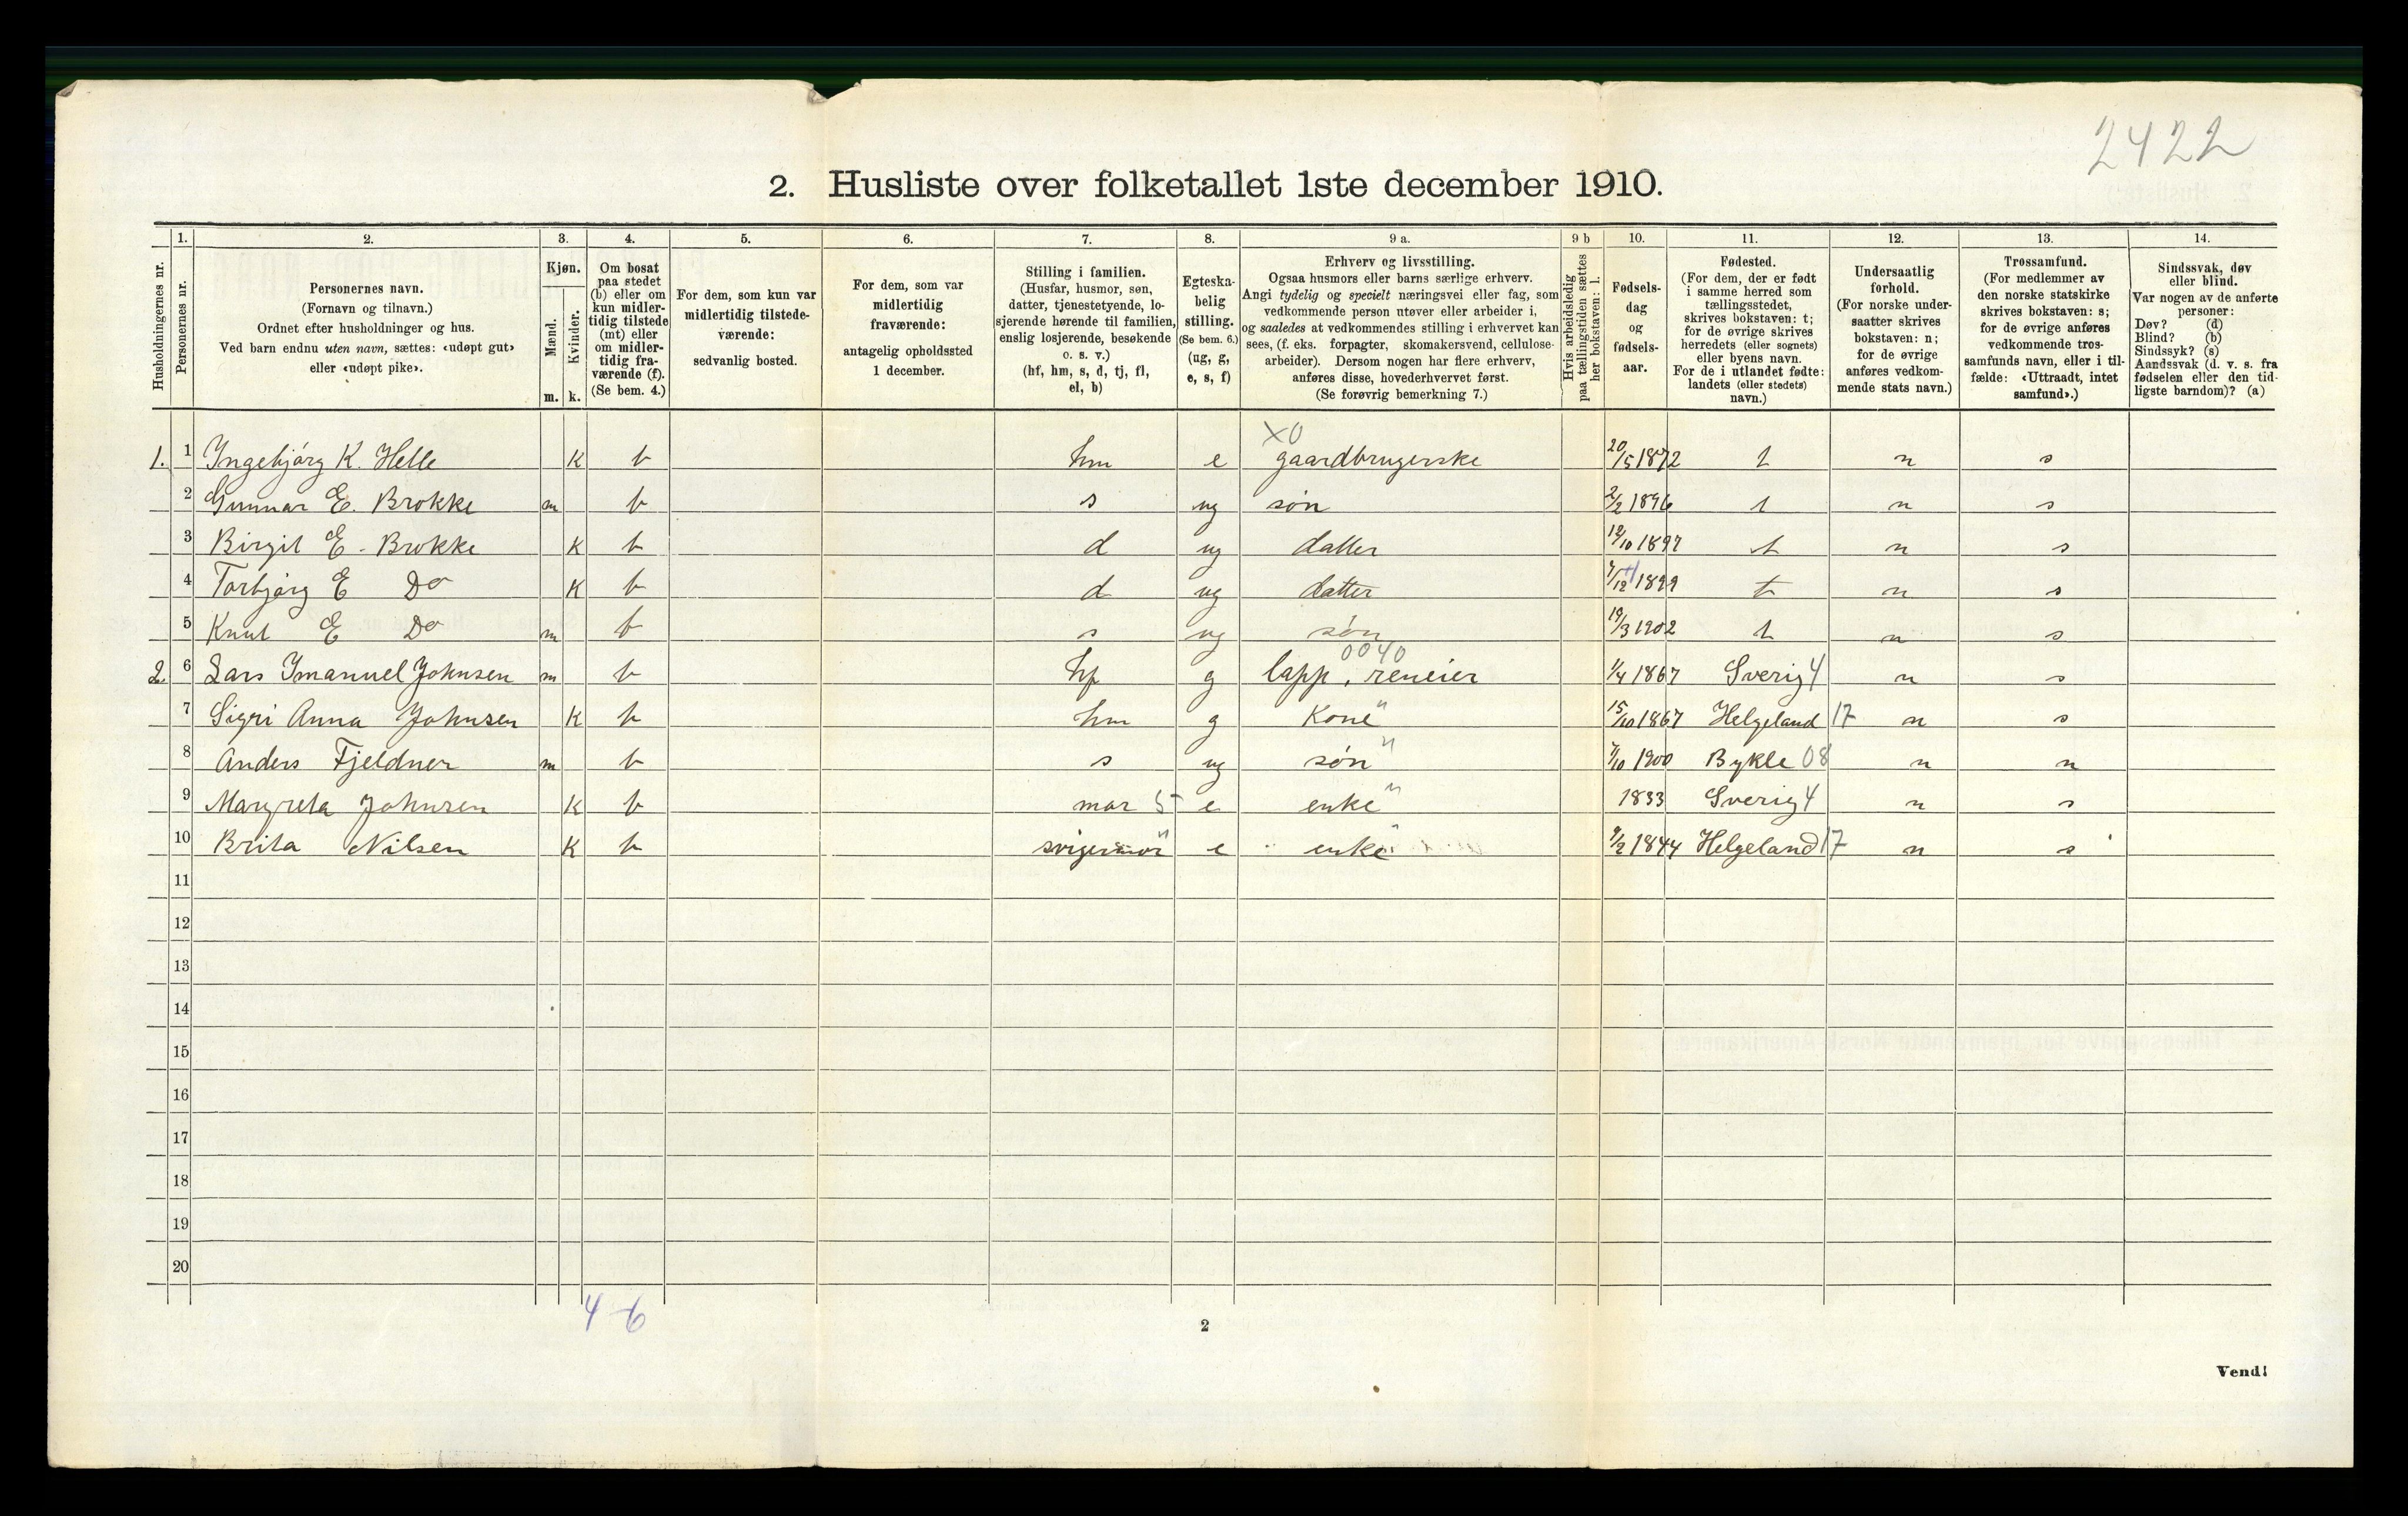 2422
2. Husliste over folketallet 1ste december 1910.
Husholdningernes nr.
1. Personernes nr.
2. Personernes navn.
(Fornavn og tilnavn.)
Ordnet efter husholdninger og hus.
Ved barn endnu uten navn, sættes: «udøpt gut»
eller «udøpt pike».
3. Kjøn.
Mænd. m.
Kvinder. k.
4. Om bosat
paa stedet
(b) eller om
kun midler-
tidig tilstede
(mt) eller
om midler-
tidig fra-
værende (f).
(Se bem. 4.)
5. For dem, som kun var
midlertidig tilstede-
værende:
sedvanlig bosted.
6. For dem, som var
midlertidig
fraværende:
antagelig opholdssted
1 december.
7. Stilling i familien.
(Husfar, husmor, søn,
datter, tjenestetyende, lo-
sjerende hørende til familien,
enslig losjerende, besøkende
o. s. v.)
(hf, hm, s, d, tj, fl,
el, b)
8. Egteska-
belig
stilling.
(Se bem. 6.)
(ug, g,
e, s, f)
9 a. Erhverv og livsstilling.
Ogsaa husmors eller barns særlige erhverv.
Angi tydelig og specielt næringsvei eller fag, som
vedkommende person utøver eller arbeider i,
og saaledes at vedkommendes stilling i erhvervet kan
sees, (f. eks. forpagter, skomakersvend, cellulose-
arbeider). Dersom nogen har flere erhverv,
anføres disse, hovederhvervet først.
(Se forøvrig bemerkning 7.)
9 b Hvis arbeidsledig
paa tællingstiden sættes
her bokstaven: l.
10. Fødsels-
dag
og
fødsels-
aar.
11. Fødested.
(For dem, der er født
i samme herred som
tællingsstedet,
skrives bokstaven: t;
for de øvrige skrives
herredets (eller sognets)
eller byens navn.
For de i utlandet fødte:
landets (eller stedets)
navn.)
12. Undersaatlig
forhold.
(For norske under-
saatter skrives
bokstaven: n;
for de øvrige
anføres vedkom-
mende stats navn.)
13. Trossamfund.
(For medlemmer av
den norske statskirke
skrives bokstaven: s;
for de øvrige anføres
vedkommende tros-
samfunds navn, eller i til-
fælde: «Uttraadt, intet
samfund».)
14. Sindssvak, døv
eller blind.
Var nogen av de anførte
personer:
Døv? (d)
Blind? (b)
Sindssyk? (s)
Aandssvak (d. v. s. fra
fødselen eller den tid-
ligste barndom)? (a)
X0
1. 1 Ingebjórg K. Helle K b hm e gaardbrugerske 20/5 1872 t n s
2 Gunnar E. Brokke m b s ug søn 2/2 1896 t n s
3 Birgit E. Brokke K b d ug datter 12/10 1897 t n s
4 Torbjórg E Do K b d ug datter 7/12 1899 t n s
5 Knut E Do m b s ug søn 19/3 1902 t n s
0040
2. 6 Lars Imanuel Johnsen m b hf g lapp, reneier 1/4 1867 Sverig 4 n s
7 Sigri Anna Johnsen K b hm g Kone " 15/10 1867 Helgeland 17 n s
8 Anders Fjeldner m b s ug søn " 7/10 1900 Bykle 08 n n
9 Margreta Johnsen K b mor 5 e enke " 1833 Sverig 4 n s
10 Brita Nilsen K b svigermor " e enke " 9/2 1844 Helgeland 17 n s
11
12
13
14
15
16
17
18
19
20
4-6
2
Vend!